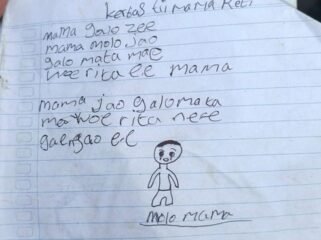 kerbas Lui mama Keti
mama galo zee
mama molo jao
galo mata mae
wee rita ee mama
mama jao galo mata
mawoe rita nere
gaengao ee
molo mama